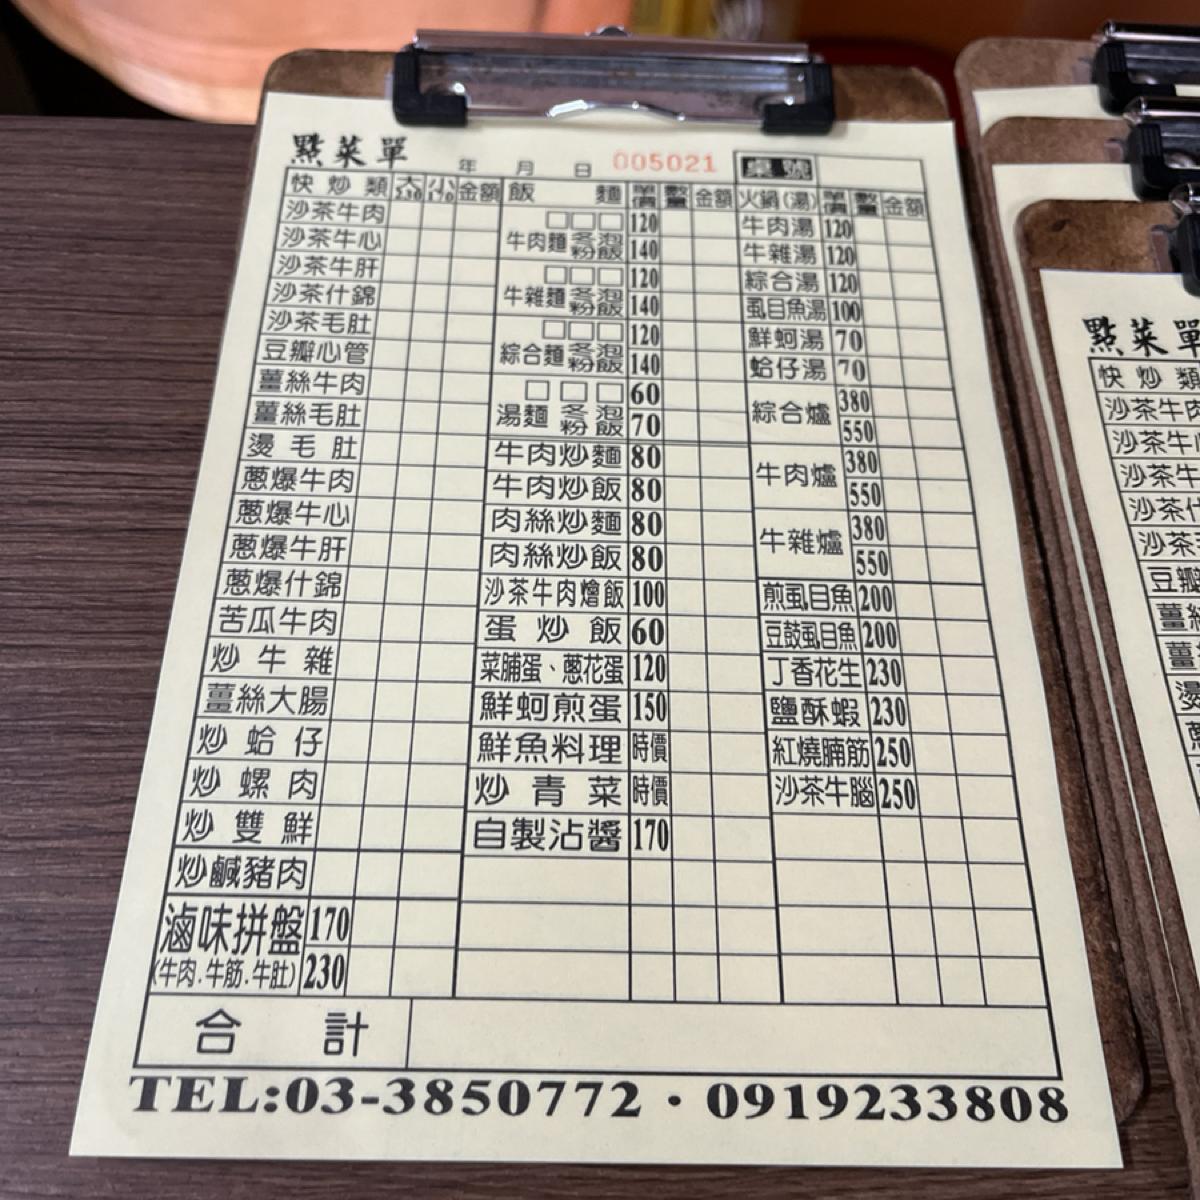 點菜單
年 月 日 005021 桌號
快炒類 大230 小170 金額 飯 麵 單價 數量 金額 火鍋(湯) 單價 數量 金額
沙茶牛肉
沙茶牛心
沙茶牛肝
沙茶什錦
沙茶毛肚
豆瓣心管
薑絲牛肉
薑絲毛肚
燙毛肚
蔥爆牛肉
蔥爆牛心
蔥爆牛肝
蔥爆什錦
苦瓜牛肉
炒牛雜
薑絲大腸
炒蛤仔
炒螺肉
炒雙鮮
炒鹹豬肉
滷味拼盤 170
(牛肉.牛筋.牛肚) 230
□□□ 120
牛肉麵 冬粉 泡飯 140
□□□ 120
牛雜麵 冬粉 泡飯 140
□□□ 120
綜合麵 冬粉 泡飯 140
□□□ 60
湯麵 冬粉 泡飯 70
牛肉炒麵 80
牛肉炒飯 80
肉絲炒麵 80
肉絲炒飯 80
沙茶牛肉燴飯 100
蛋炒飯 60
菜脯蛋、蔥花蛋 120
鮮蚵煎蛋 150
鮮魚料理 時價
炒青菜 時價
自製沾醬 170
牛肉湯 120
牛雜湯 120
綜合湯 120
虱目魚湯 100
鮮蚵湯 70
蛤仔湯 70
綜合爐 380
550
牛肉爐 380
550
牛雜爐 380
550
煎虱目魚 200
豆鼓虱目魚 200
丁香花生 230
鹽酥蝦 230
紅燒腩筋 250
沙茶牛腦 250
合計
TEL:03-3850772・0919233808
點菜單
快炒類
沙茶牛肉
沙茶牛
沙茶牛
沙茶什
沙茶
豆瓣